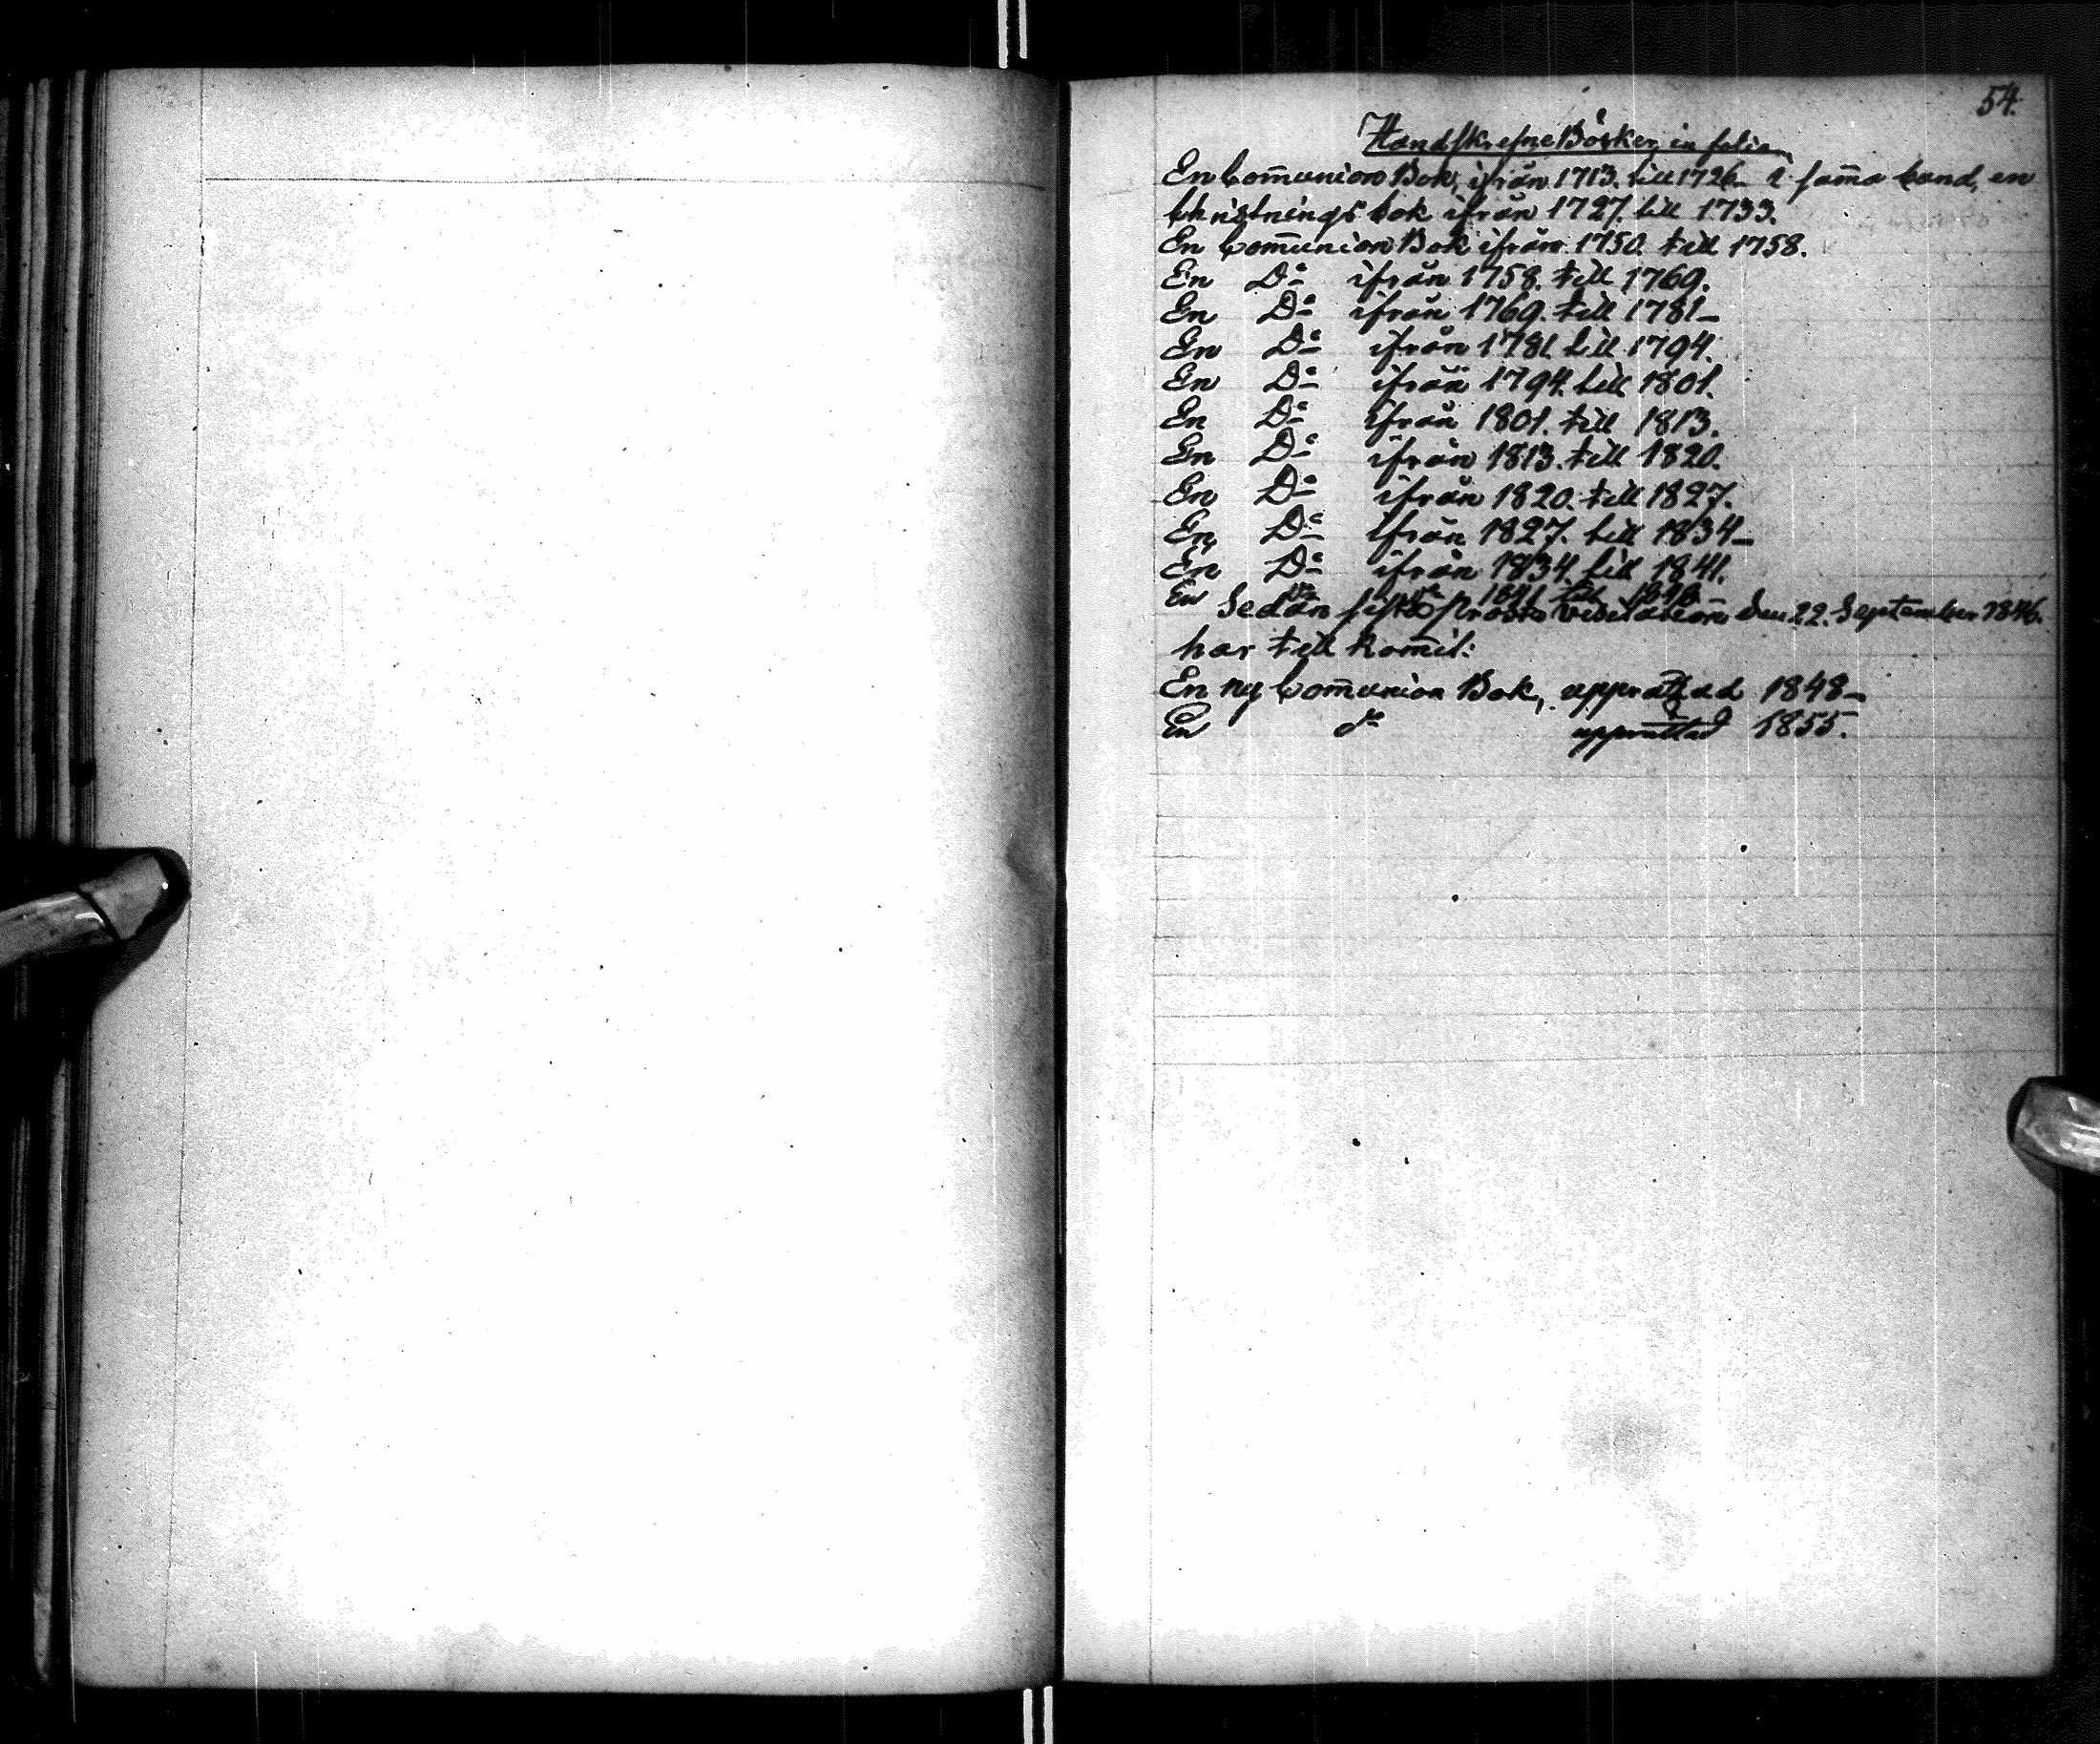 54.
Handskrefne Böcker, in folio
En Com̅union Bok, ifrån 1713. till 1726_ i sam̅a band, en
Christnings bok ifrån 1727. till 1733.
En Com̅union Bok ifrån 1750. till 1758.
En Do ifrån 1758. till 1769.
En Do ifrån 1769. till 1781_
En Do ifrån 1781. till 1794.
En Do ifrån 1794. till 1801.
En Do ifrån 1801. till 1813.
En Do ifrån 1813. till 1820.
En Do ifrån 1820. till 1827.
En Do ifrån 1827. till 1834_
En Do ifrån 1834. till 1841.
En do 1841 till 1848
Sedan sista Prosts visitation den 22. September 1846.
har till kom̅it:
En ny Com̅union Bok, upprättad 1848_
En do upprättad 1855.